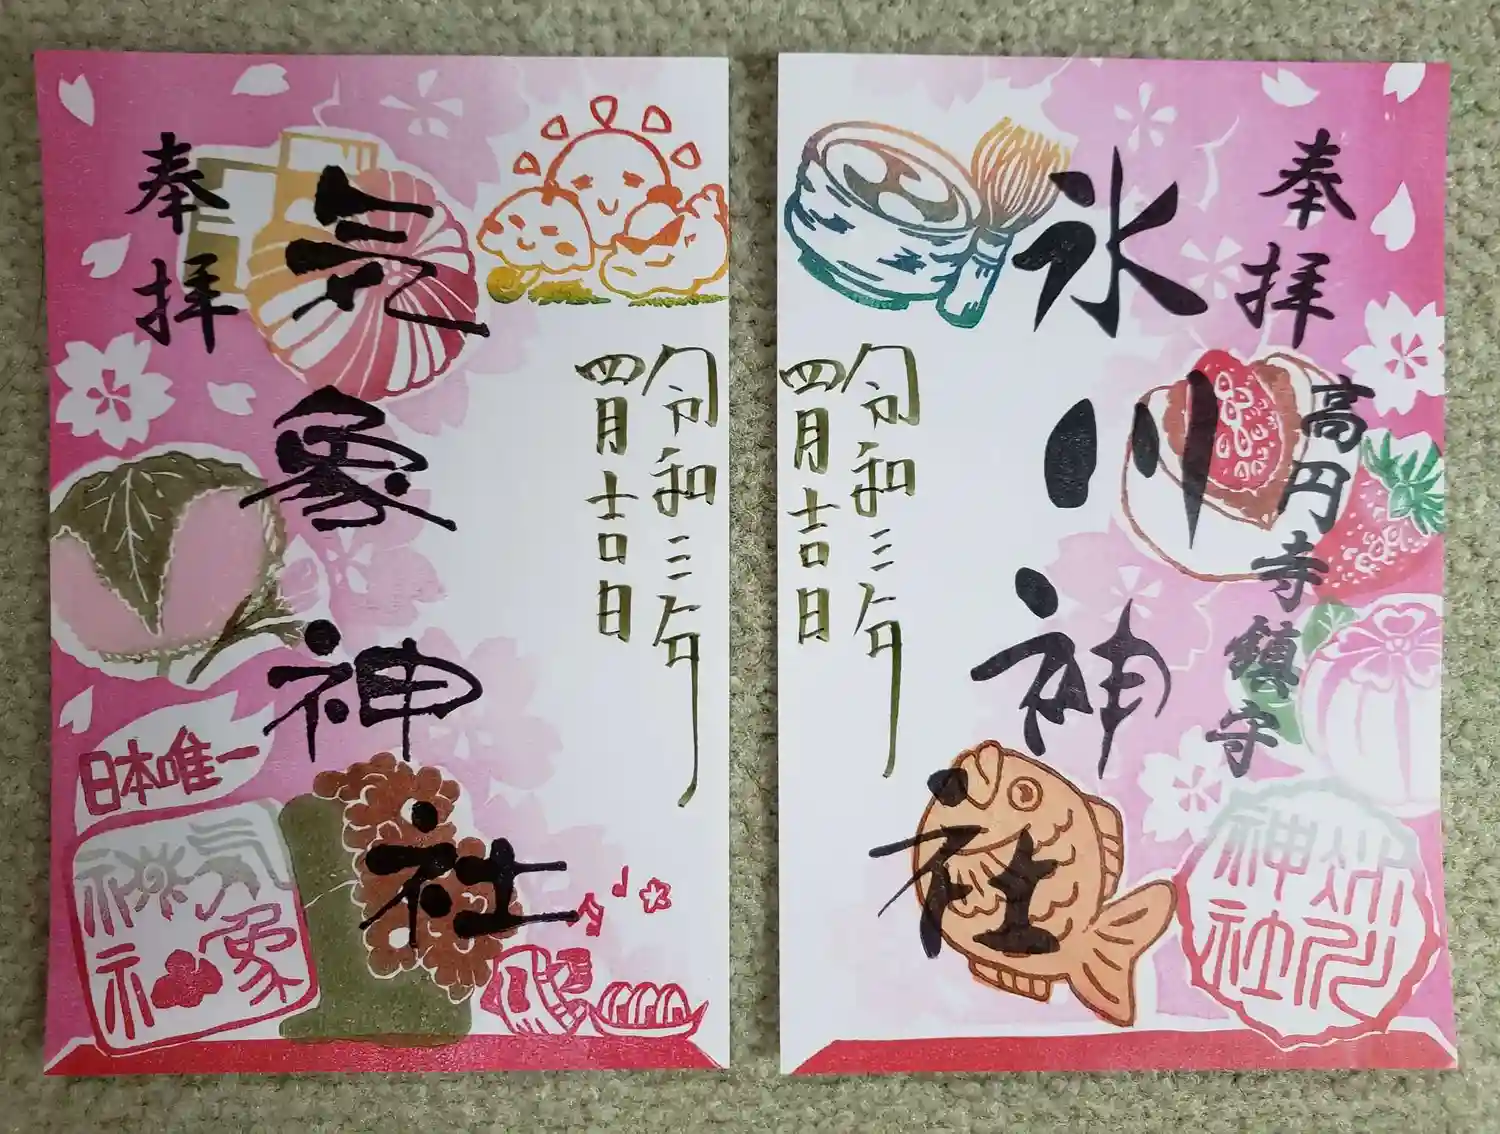 奉拝
高円寺鎮守
氷川神社
氷川神社
令和三年
四月吉日
令和三年
四月吉日
気象神社
奉拝
日本唯一
気象神社